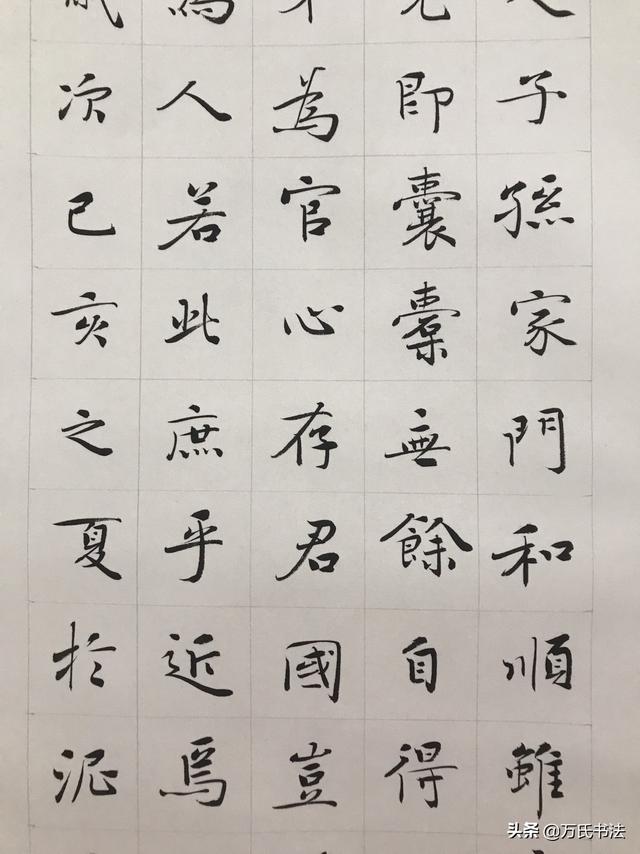 子孫家門和順雖
即囊橐無餘自得
為官心存君國豈
人若此庶乎近焉
次己亥之夏於泥
头条 @万氏书法